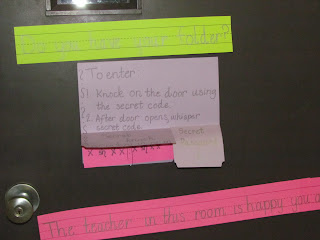 Do you have your folder?
To enter
1. Knock on the door using
the secret code.
2. After door opens, whisper
secret code.
Secret
The teacher in this room is happy you a